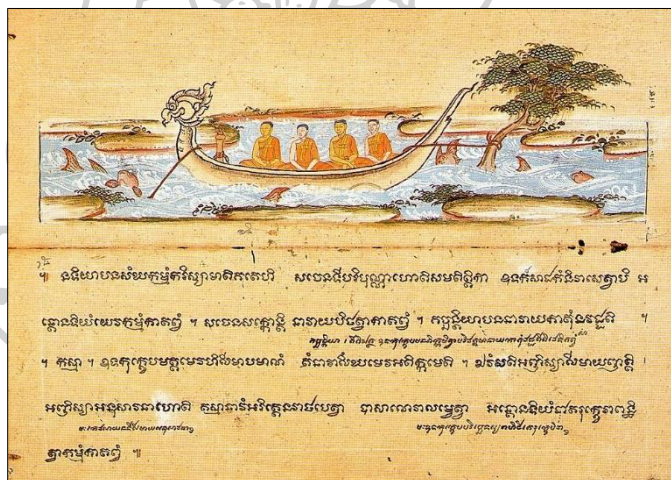 ។ នទិយាបនសំឃកម្មំករិស្សាមាតិគតេហិ សចេនទីបរិបុណ្ណាហោតិសមតិត្ថិកា ឧទកសាដកំនិវាសេត្វាបិ អ
ន្តោនទិយំយេវកម្មំកាតព្វំ ។ សចេនសក្កោន្តិ នាវាយបិឋត្វាកាតព្វំ ។ គច្ឆន្តិយាបននាវាយកាតុំនវដ្ដតិ ។
។ កស្មា ។ ឧទកុក្ខេបមត្តមេវហិសីមាបមាណំ តំនាវាសីឃមេវអតិក្កមេតិ ។ ឯវំសតិអញ្ញិស្សាសីមាយញាត្តិ
អញ្ញិស្សាអនុសាវនាហោតិ តស្មានាវំអរិត្តេនវាឋបេត្វា បាសាណេវាលម្ពេត្វា អន្តោនទិយំជាតរុក្ខេវាពន្ធិ
ត្វាកម្មំកាតព្វំ ៕